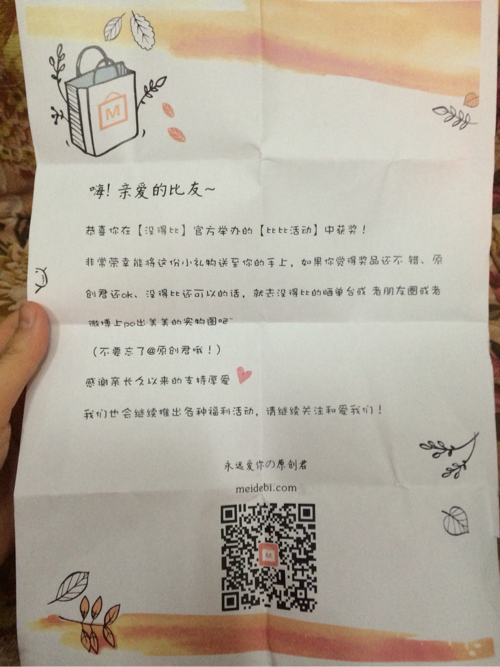 M
嗨! 亲爱的比友~
恭喜你在【没得比】官方举办的【比比活动】中获奖!
非常荣幸能将这份小礼物送至你的手上, 如果你觉得奖品还不 错、原
创君还ok、没得比还可以的话, 就去没得比的晒单台或 者朋友圈或者
微博上po出美美的实物图吧~
(不要忘了@原创君哦!)
感谢亲长久以来的支持厚爱
我们也会继续推出各种福利活动, 请继续关注和爱我们!
永远爱你の原创君
meidebi.com
M